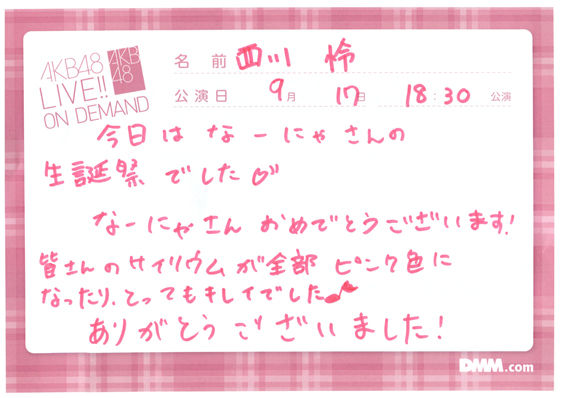 AKB48
LIVE!!
ON DEMAND
AKB
48
名前 西川 怜
公演日 9月 17日 18:30 公演
今日は なーにゃ さんの
生誕祭 でした♡
なーにゃさん おめでとうございます!
皆さんのサイリウムが全部 ピンク色に
なったり、とってもキレイでした♪
ありがとうございました!
DMM.com